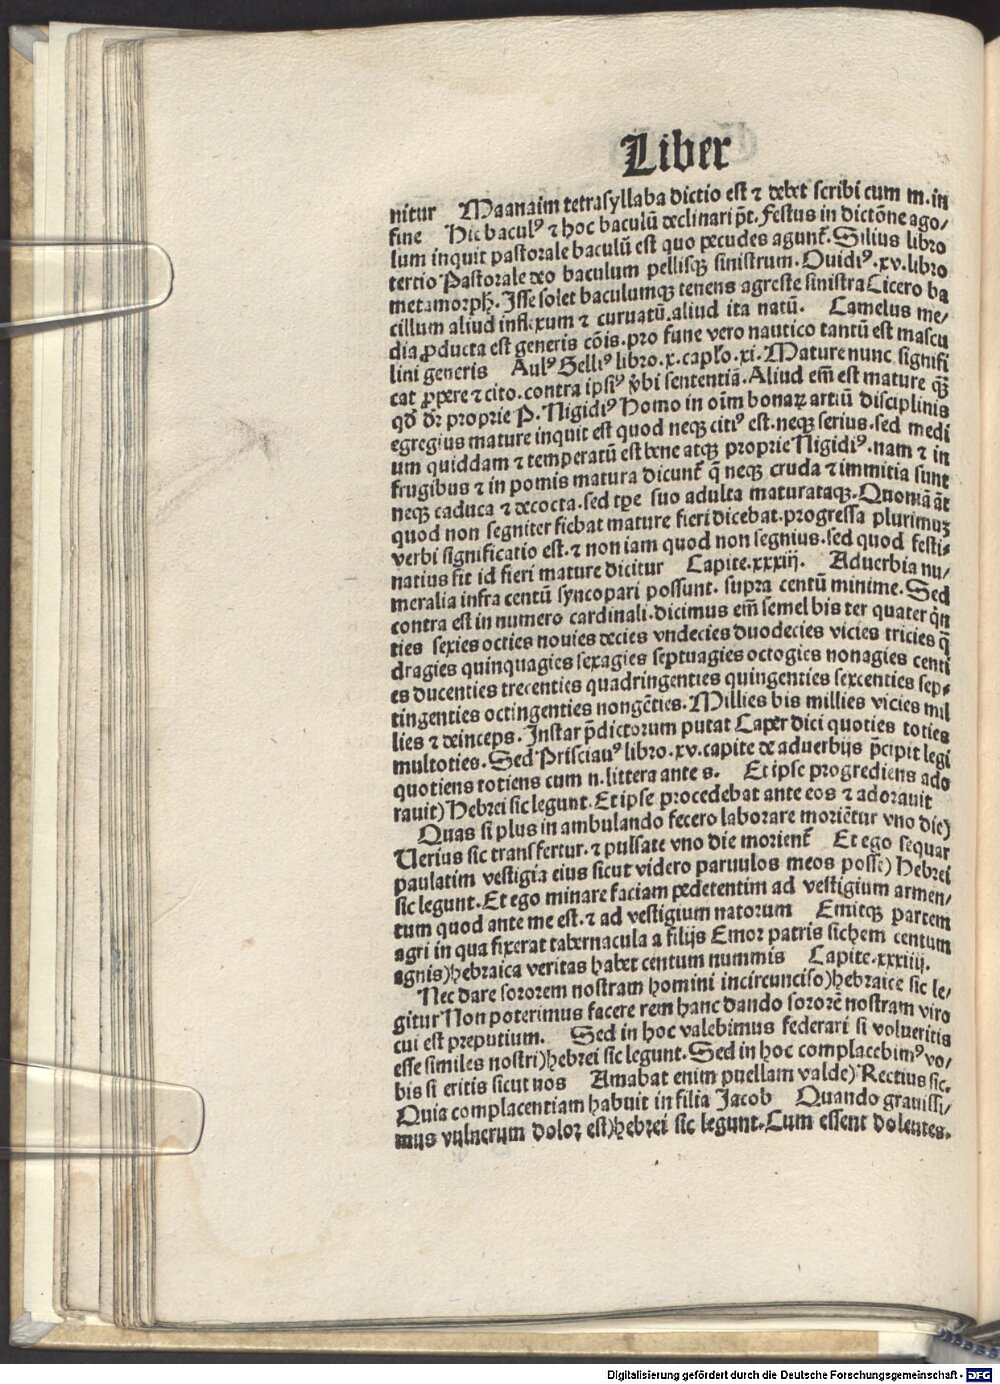 Liber
nitur Maanaim tetrasyllaba dictio est ⁊ debet scribi cum m. in
fine Hic baculꝰ ⁊ hoc baculū declinari pōt. Festus in dictōne ago/
lum inquit pastorale baculū est quo pecudes agunt̄. Silius libro
tertio Pastorale deo baculum pellisqꝫ sinistrum. Ouidiꝰ.xv.libro
metamorpħ. Isse solet baculumqꝫ tenens agreste sinistra Cicero ba
cillum aliud inflexum ⁊ curuatū.aliud ita natū. Camelus me/
dia ꝓducta est generis cōis.pro fune vero nautico tantū est mascu
lini generis Aulꝰ Gelliꝰ libro.x.caplo.xi. Mature nunc signifi
cat ꝓpere ⁊ cito.contra ipsiꝰ v̄bi sententiā. Aliud em̄ est mature qꝫ
qđ dr̄ proprie P. Nigidiꝰ Homo in oīm bonaꝝ artiū disciplinis
egregius mature inquit est quod neqꝫ citiꝰ est.neqꝫ serius.sed medi
um quiddam ⁊ temperatū est bene atqꝫ proprie Nigidiꝰ.nam ⁊ in
frugibus ⁊ in pomis matura dicunt̄ q̄ neqꝫ cruda ⁊ immitia sunt
neqꝫ caduca ⁊ decocta.sed tꝑe suo adulta maturataqꝫ. Quoniā āt
quod non segniter fiebat mature fieri dicebat.progressa plurimuꝫ
verbi significatio est.⁊ non iam quod non segnius.sed quod festi⸗
natius fit id fieri mature dicitur Capite.xxxiij. Aduerbia nu/
meralia infra centū syncopari possunt. supra centū minime. Sed
contra est in numero cardinali.dicimus em̄ semel bis ter quater qn̄
ties sexies octies nouies decies vndecies duodecies vicies tricies q̄
dragies quinquagies sexagies septuagies octogies nonagies centi
es ducenties trecenties quadringenties quingenties sexcenties sep⸗
tingenties octingenties nongēties. Millies bis millies vicies mil
lies ⁊ deinceps. Instar p̄dictorum putat Caper dici quoties toties
multoties. Sed Priscianꝰ libro.xv.capite de aduerbijs p̄cipit legi
quotiens totiens cum n.littera ante s. Et ipse progrediens ado
rauit) Hebrei sic legunt. Et ipse procedebat ante eos ⁊ adorauit
Quas si plus in ambulando fecero laborare moriētur vno die)
Uerius sic transfertur.⁊ pulsate vno die morient̄ Et ego sequar
paulatim vestigia eius sicut videro paruulos meos posse) Hebrei
sic legunt. Et ego minare faciam pedetentim ad vestigium armen/
tum quod ante me est.⁊ ad vestigium natorum Emitqꝫ partem
agri in qua fixerat tabernacula a filijs Emor patris sichem centum
agnis)hebraica veritas habet centum nummis Capite.xxxiiij.
Nec dare sororem nostram homini incircunciso)hebraice sic le/
gitur Non poterimus facere rem hanc dando sororē nostram viro
cui est preputium. Sed in hoc valebimus federari si volueritis
esse similes nostri)hebrei sic legunt. Sed in hoc complacebimꝰ vo/
bis si eritis sicut nos Amabat enim puellam valde) Rectius sic.
Quia complacentiam habuit in filia Jacob Quando grauissi/
mus vulnerum dolor est)hebrei sic legunt. Cum essent dolentes.
Digitalisierung gefördert durch die Deutsche Forschungsgemeinschaft - DFG